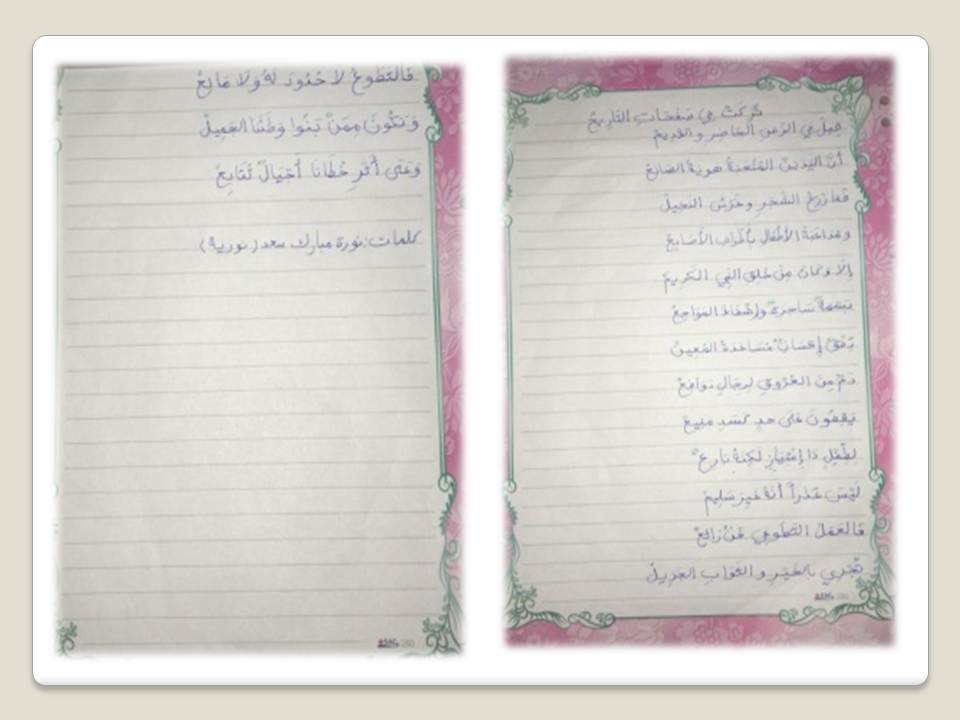 تركت في صفحات التاريخ
جيل في الزمن الحاضر و القديم
أن اليدين المتعبة هوية الصانع
فما زرع الشجر وغرس النخيل
ومداعبة الأطفال بأطراف الأصابع
إلا وكان من خلق النبي الكريم
بسمة ساحرة وإشفاء المواجع
برفق إحسان مساعدة المعين
دم من العروق لرجال
يقفون على حد كسد منيع
لطفل ذا إمتياز لكنه بارع
ليس عذراً أنه غير سليم
فالعمل التطوعي فن رائع
تجزي بالخير و الثواب الجزيل
فالتطوع لا حدود له ولا مانع
ونكون ممن بنوا وطننا الجميل
وعلى أثر خطانا أجيال تتابع
كلمات: نورة مبارك سعد (نورية)